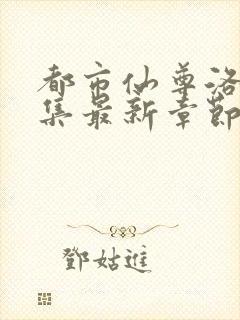 都市仙尊洛
集最新章節
鄧姑進